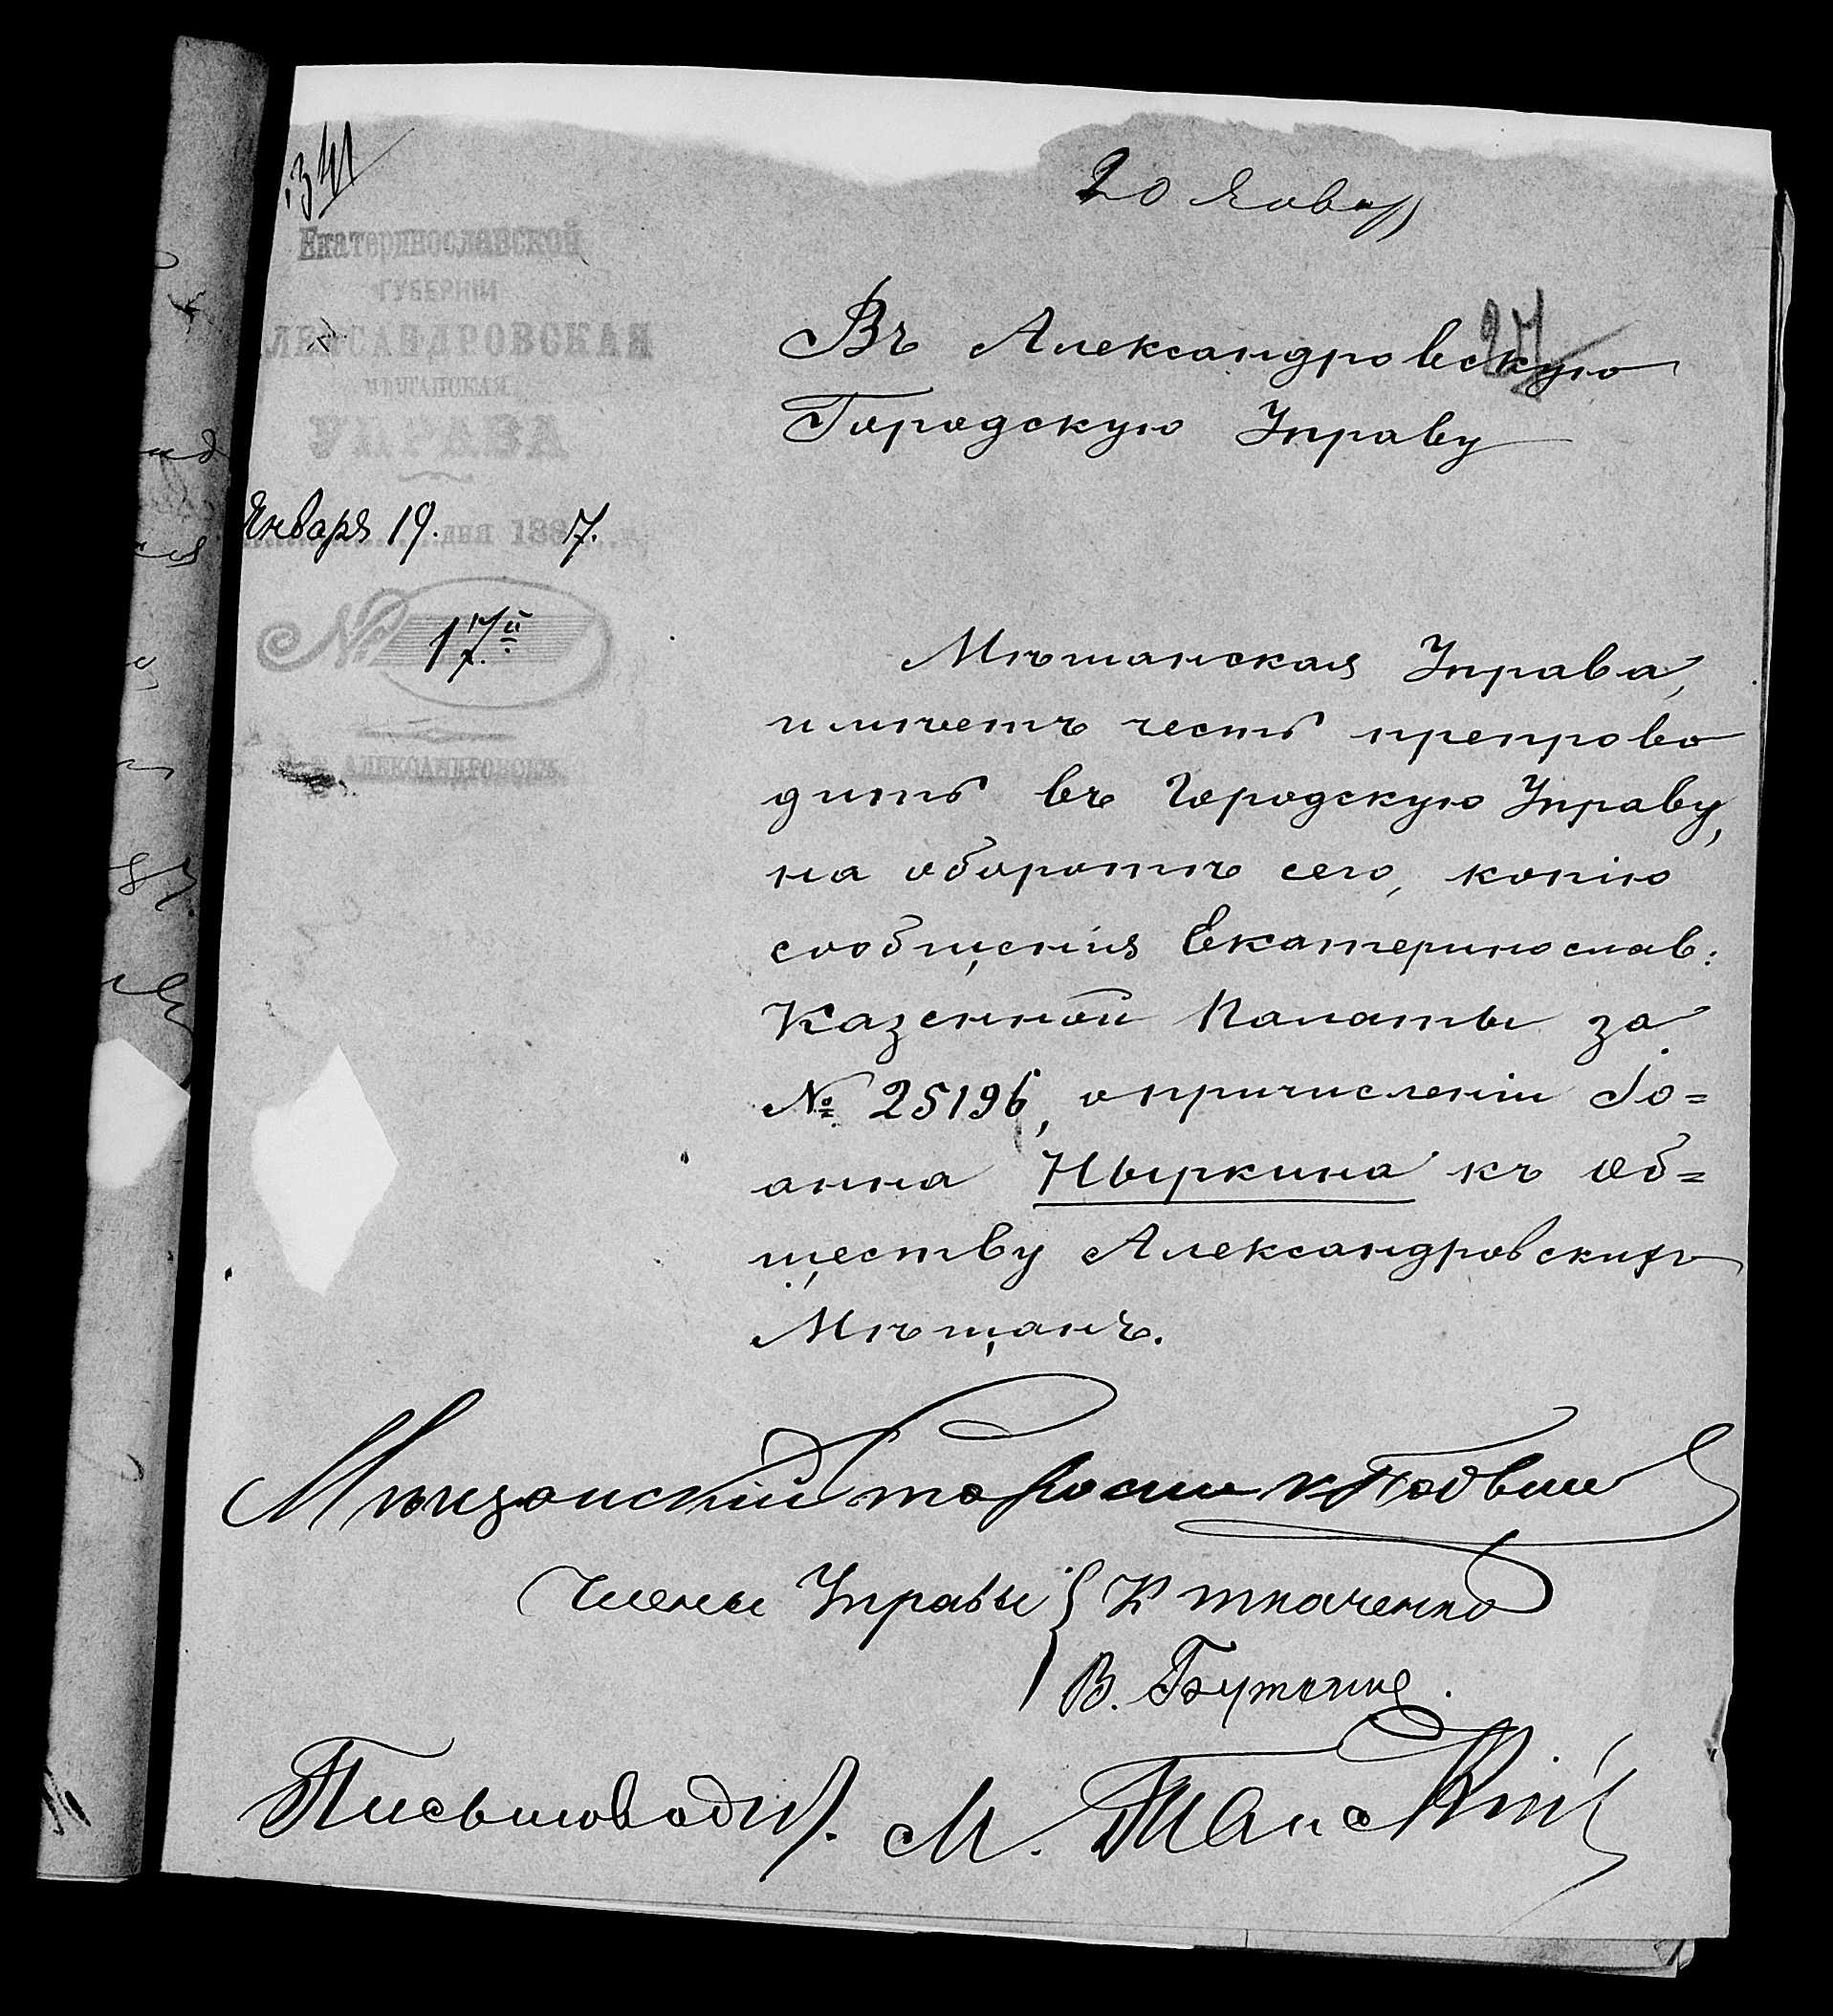 341
20 Январ
Екатеринославской
ГУБЕРНІИ
АЛЕКСАНДРОВСКАЯ
МѢЩАНСКАЯ
УПРАВА
Января 19. дня 1887.
№ 17
Г. АЛЕКСАНДРОВСКЪ.
27
Въ Александровскую
Городскую Управу
Мѣщанская Управа,
имѣетъ честь препрово
дить въ Городскую Управу,
на оборотѣ сего, копію
сообщенія Екатеринослав:
Казенной Палаты за
№ 25196, о причисленіи Іо=
анна Ныркина къ об=
ществу Александровскихъ
Мѣщанъ.
Мѣщанскій Староста
Члены Управы К Ткаченко
В. Бутенко.
Письмовод. М.